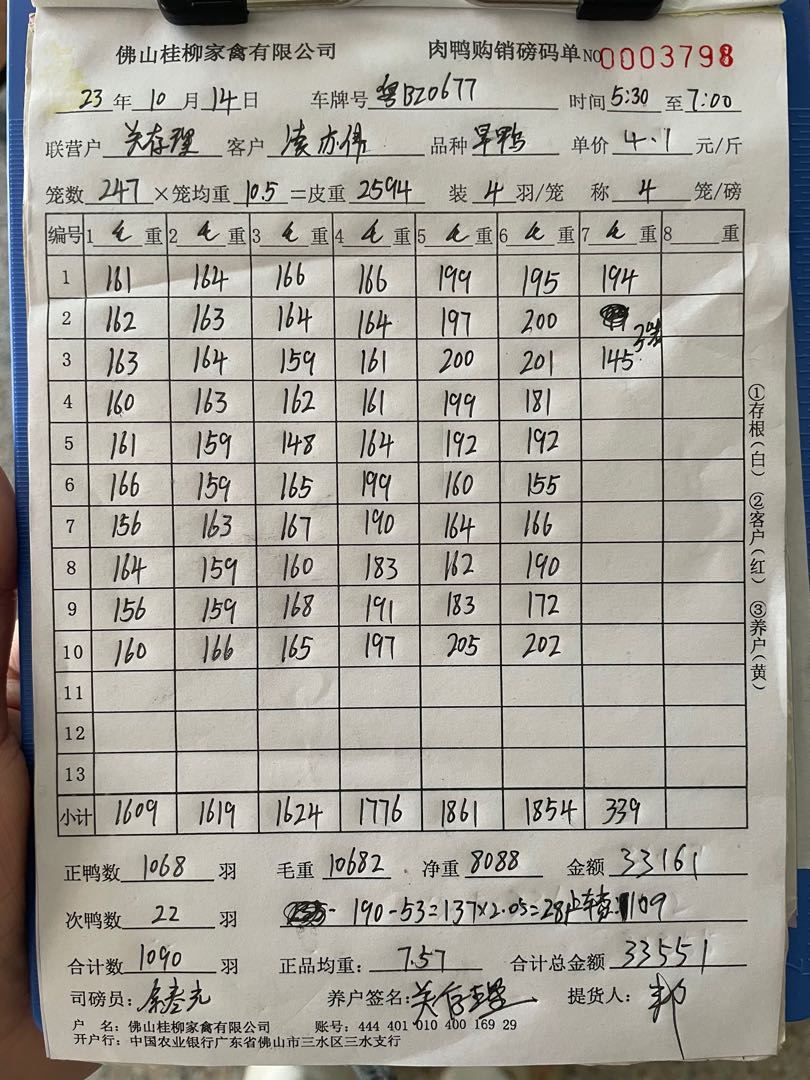 佛山桂柳家禽有限公司 肉鸭购销磅码单 NO 0003798
23 年 10 月 14 日 车牌号 粤BZ0677 时间 5:30 至 7:00
联营户 关存理 客户 凌亦伟 品种 旱鸭 单价 4.1 元/斤
笼数 247 ×笼均重 10.5 =皮重 2594 装 4 羽/笼 称 4 笼/磅
编号 1 毛 重 2 毛 重 3 毛 重 4 毛 重 5 毛 重 6 毛 重 7 毛 重 8 重
1 161 164 166 166 199 195 194
2 162 163 164 164 197 200
3 163 164 159 161 200 201 145 3笼
4 160 163 162 161 199 181
5 161 159 148 164 192 192
6 166 159 165 199 160 155
7 156 163 167 190 164 166
8 164 159 160 183 162 190
9 156 159 168 191 183 172
10 160 166 165 197 205 202
11
12
13
小计 1609 1619 1624 1776 1861 1854 339
①存根(白) ②客户(红) ③养户(黄)
正鸭数 1068 羽 毛重 10682 净重 8088 金额 33161
次鸭数 22 羽 - 190-53=137×2.05=281 109
合计数 1090 羽 正品均重: 7.57 合计总金额 33551
司磅员: 养户签名: 关存理 提货人:
户 名: 佛山桂柳家禽有限公司 账号: 444 401 010 400 169 29
开户行: 中国农业银行广东省佛山市三水区三水支行